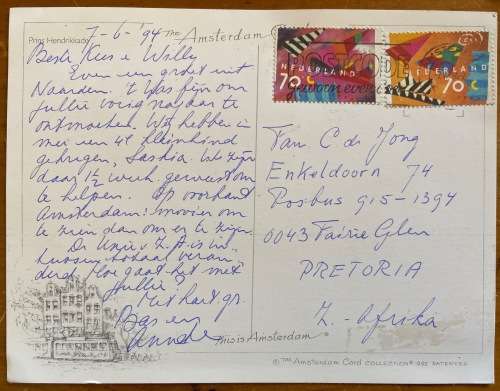 Prins Hendrikkade
7-6-'94
The Amsterdam
Beste Kees e Willy
Even een groet uit
Naarden. 't Was fijn om
jullie vorig najaar te
ontmoeten. Wij hebben in
mei een 4e kleinkind
gekregen, Saskia. We zijn
daar 1½ week geweest om
te helpen. Op voorkant
Amsterdam: mooier om
te zien dan om er te zijn.
De Unie v Z.A. is in
tussen totaal veran
derd. Hoe gaat het met
jullie?
Met hart. gr.
Bas en
This is Amsterdam
NEDERLAND
70 c
NEDERLAND
70 c
POSTCODE
gewoon even
Fam C de Jong
Enkeldoorn 74
Posbus 915-1394
0043 Fairie Glen
PRETORIA
Z-Afrika
© The Amsterdam Card Collection